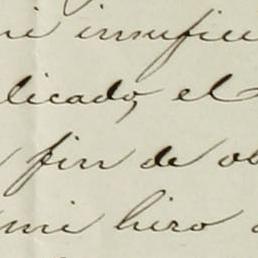 mi insufici
licado, el
fin de ob
mi hiro